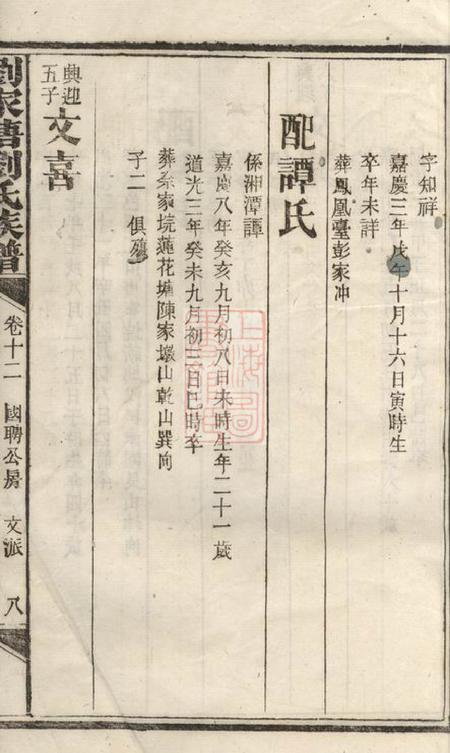 字知祥
嘉慶三年戊午十月十六日寅時生
卒年未詳
葬鳳凰臺彭家冲
配譚氏
係湘潭譚
嘉慶八年癸亥九月初八日未時生年二十一歲
道光三年癸未九月初三日巳時卒
葬余家垸蓮花塘陳家墩山乾山巽向
子二 俱殤
興迎
五子
文喜
劉家唐劉氏族譜
卷十二 國聘公房 文派 八